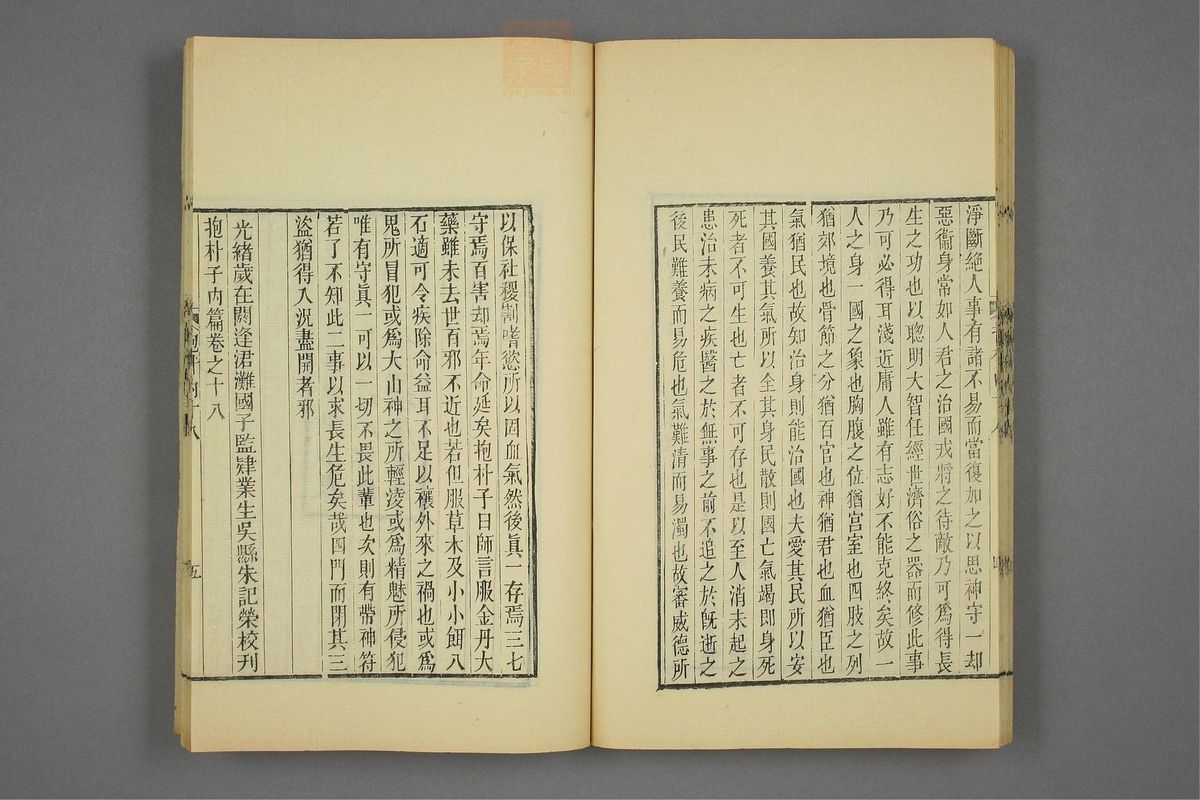 淨斷絕人事有諸不易而當復加之以思神守一却
惡衞身常如人君之治國戎將之待敵乃可爲得長
生之功也以聰明大智任經世濟俗之器而修此事
乃可必得耳淺近庸人雖有志好不能克終矣故一
人之身一國之象也胸腹之位猶宮室也四肢之列
猶郊境也骨節之分猶百官也神猶君也血猶臣也
氣猶民也故知治身則能治國也夫愛其民所以安
其國養其氣所以全其身民散則國亡氣竭即身死
死者不可生也亡者不可存也是以至人消未起之
患治未病之疾醫之於無事之前不追之於旣逝之
後民難養而易危也氣難清而易濁也故審威德所
以保社稷割嗜慾所以固血氣然後眞一存焉三七
守焉百害却焉年命延矣抱朴子曰師言服金丹大
藥雖未去世百邪不近也若但服草木及小小餌八
石適可令疾除命益耳不足以禳外來之禍也或爲
鬼所冒犯或爲大山神之所輕淩或爲精魅所侵犯
唯有守眞一可以一切不畏此輩也次則有帶神符
若了不知此二事以求長生危矣哉四門而閉其三
盜猶得入況盡開者邪
光緒歲在閼逢涒灘國子監肄業生吳縣朱記榮校刊
抱朴子內篇卷之十八
五